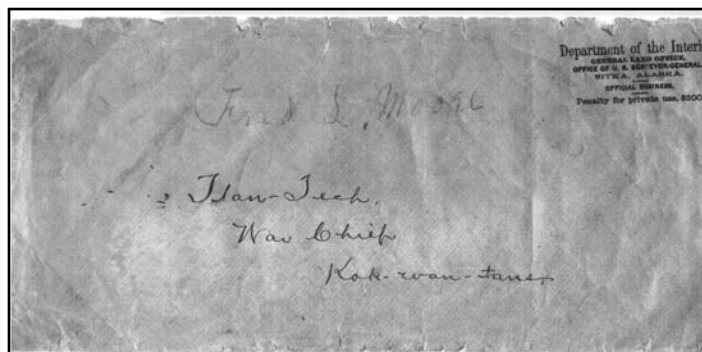 Department of the Interi
GENERAL LAND OFFICE,
OFFICE OF U. S. SURVEYOR-GENERAL,
SITKA, ALASKA.
OFFICIAL BUSINESS.
Penalty for private use, $300
Fred L. Moore
Tlan-Tech.
War Chief
Kok-wan-tans.